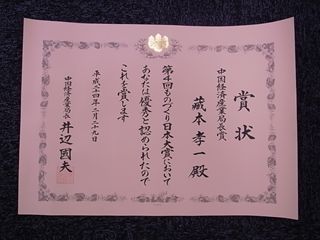 賞状
中国経済産業局長賞
藏本孝一殿
第4回ものづくり日本大賞において
あなたは優秀と認められたので
これを賞します
平成二四年二月二十九日
中国経済産業局長
井辺國夫